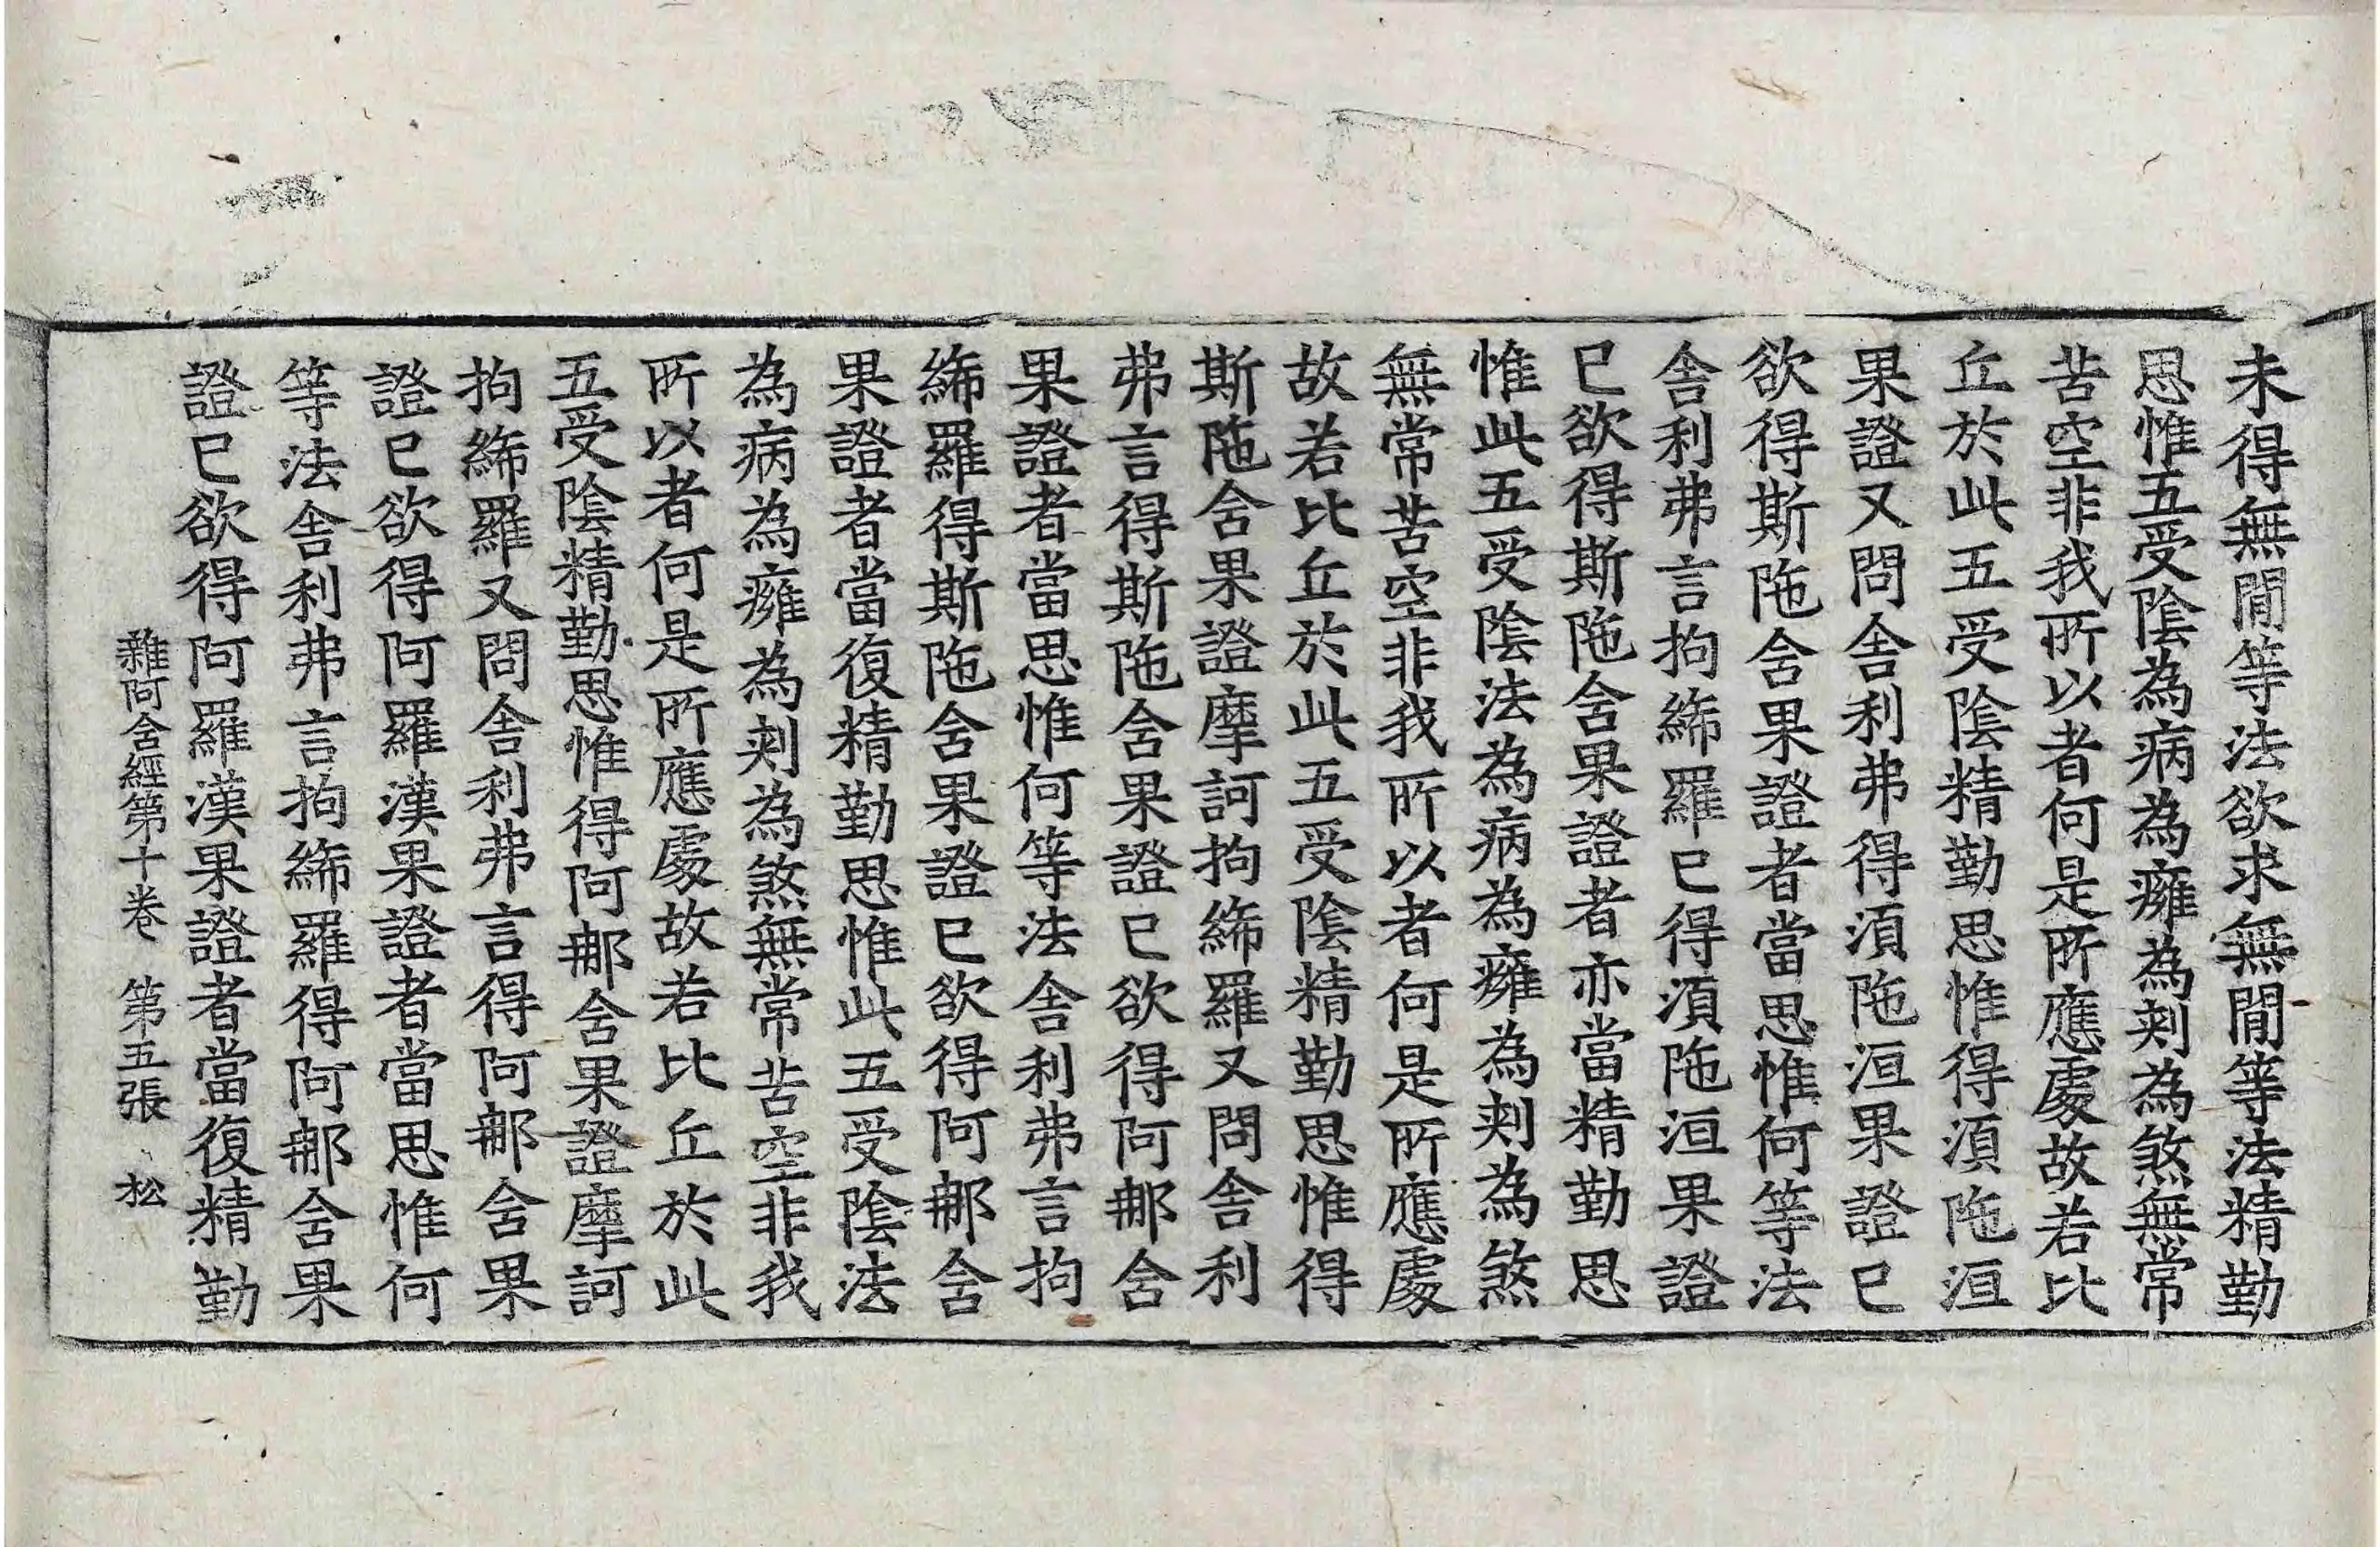 未得無閒等法欲求無閒等法精勤
思惟五受陰為病為癰為刺為煞無常
苦空非我所以者何是所應處故若比
丘於此五受陰精勤思惟得須陁洹
果證又問舍利弗得須陁洹果證已
欲得斯陁含果證者當思惟何等法
舍利弗言拘絺羅已得須陁洹果證
已欲得斯陁含果證者亦當精勤思
惟此五受陰法為病為癰為刺為煞
無常苦空非我所以者何是所應處
故若比丘於此五受陰精勤思惟得
斯陁含果證摩訶拘絺羅又問舍利
弗言得斯陁含果證已欲得阿那含
果證者當思惟何等法舍利弗言拘
絺羅得斯陁含果證已欲得阿那含
果證者當復精勤思惟此五受陰法
為病為癰為刺為煞無常苦空非我
所以者何是所應處故若比丘於此
五受陰精勤思惟得阿那含果證摩訶
拘絺羅又問舍利弗言得阿那含果
證已欲得阿羅漢果證者當思惟何
等法舍利弗言拘絺羅得阿那含果
證已欲得阿羅漢果證者當復精勤
雜阿含經第十卷 第五張 松